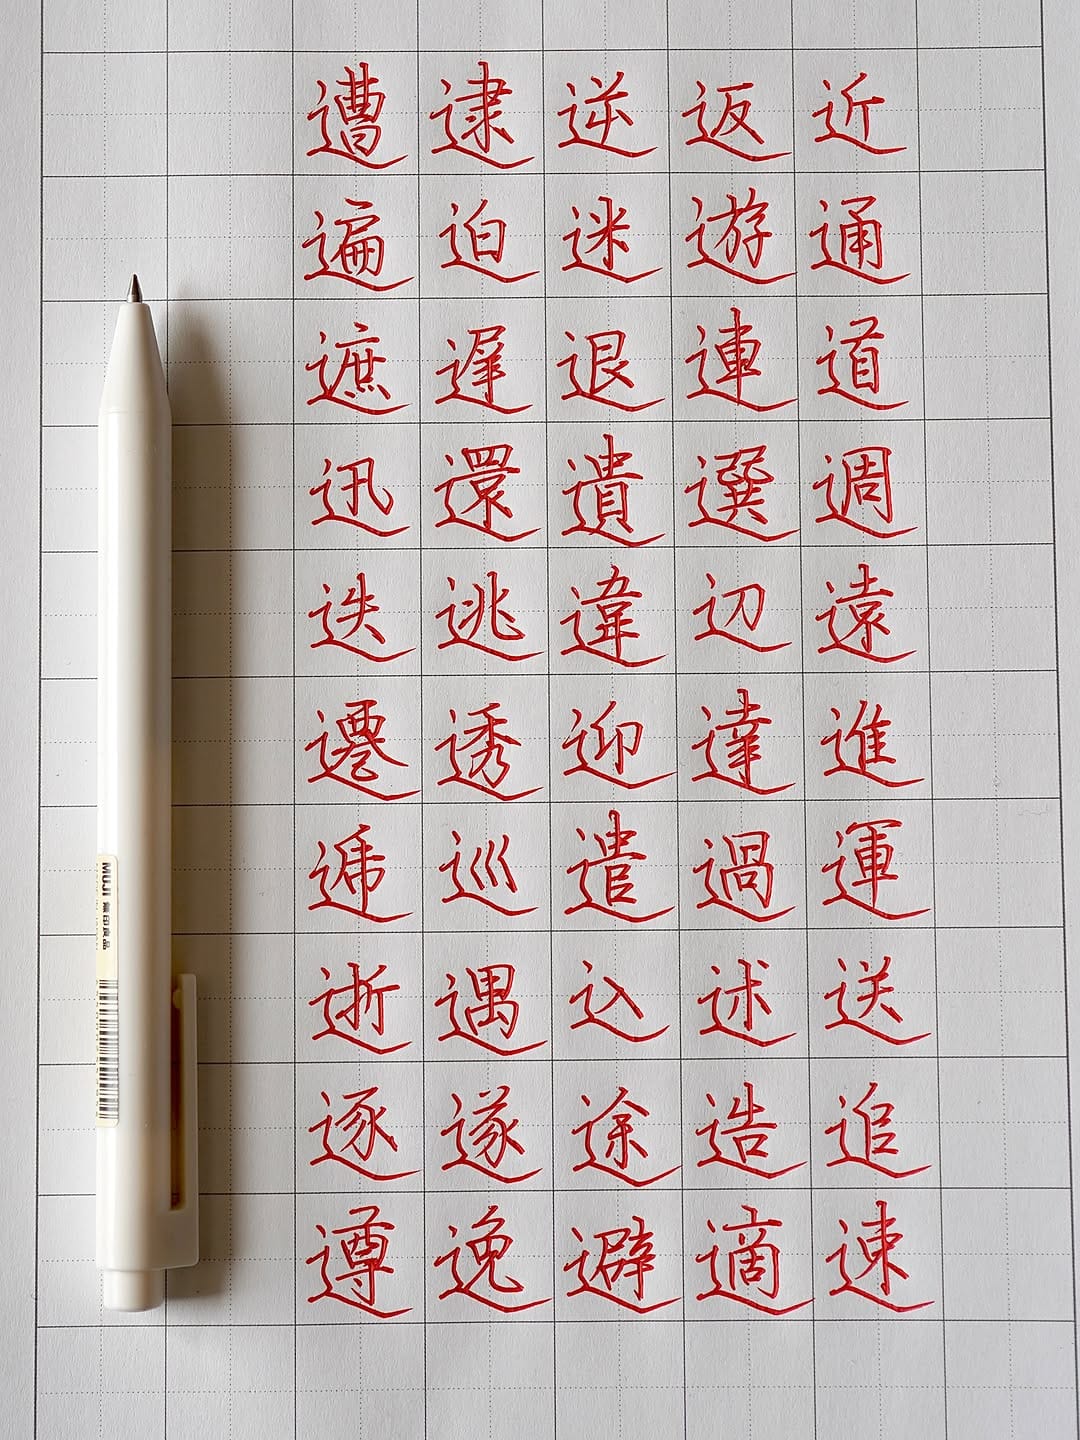 近通道週遠進運送追速
返遊連選辺達過述造適
逆迷退遺違迎遣込途避
逮迫遅還逃透巡遇遂逸
遭遍遮迅迭遷逓逝逐遵
MUJI 無印良品